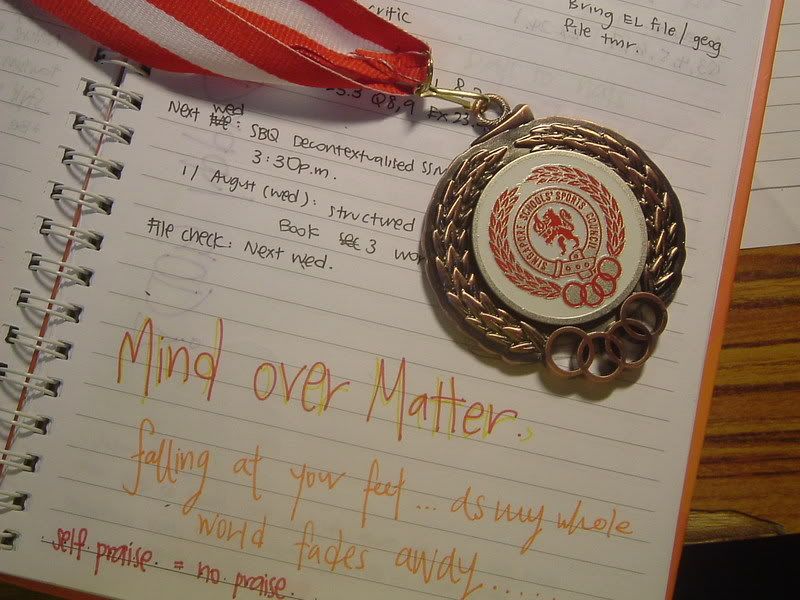 critic
Bring EL file / geog
file tmr.
Q8,9 Ex 23.
Next wed: SBQ Decontextualised SSN
3:30p.m.
1/ August (wed): structured
Book sec 3 wo
File check: Next wed.
SINGAPORE SCHOOLS' SPORTS COUNCIL
Mind over Matter.,
falling at your feet ... as my whole
world fades away......
self praise = no praise.